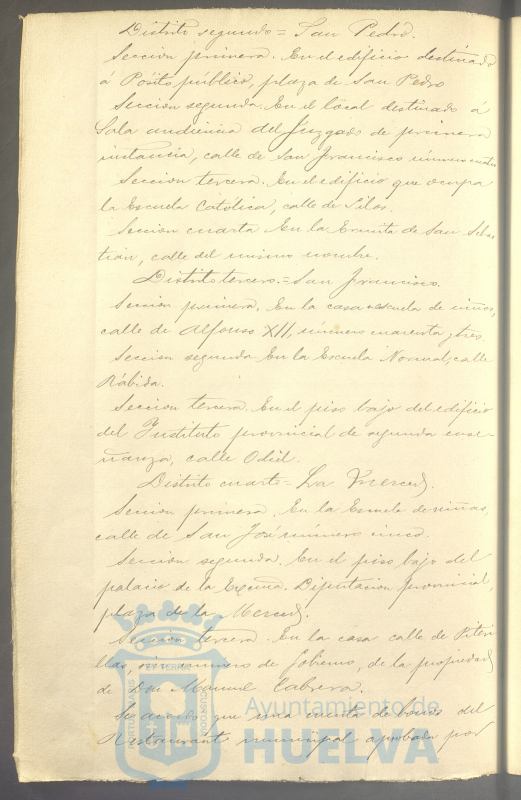 Distrito segundo = San Pedro.
Seccion primera. En el edificio destinado
á Pósito público, plaza de San Pedro
Seccion segunda. En el local destinado á
Sala audiencia del Juzgado de primera
instancia, calle de San Francisco número cuatro
Seccion tercera. En el edificio que ocupa
la Escuela Católica, calle de Silos.
Seccion cuarta En la Ermita de San Sebas
tian, calle del mismo nombre.
Distrito tercero.= San Francisco.
Seccion primera. En la casa escuela de niños,
calle de Alfonso XII, número cuarenta y tres
Seccion segunda En la Escuela Normal, calle
Rábida.
Seccion tercera. En el piso bajo del edificio
del Instituto provincial de segunda ense-
ñanza, calle Odiel.
Distrito cuarto = La Merced.
Seccion primera. En la Escuela de niñas,
calle de San José número cinco.
Seccion segunda. En el piso bajo del
palacio de la Excma. Diputacion provincial,
plaza de la Merced.
Seccion tercera. En la casa calle de
sin número de Gobierno, de la propiedad
de Don Manuel Cabrera.
Se acordó que una cuenta de del
Restaurant municipal aprobada por
Ayuntamiento de
HUELVA